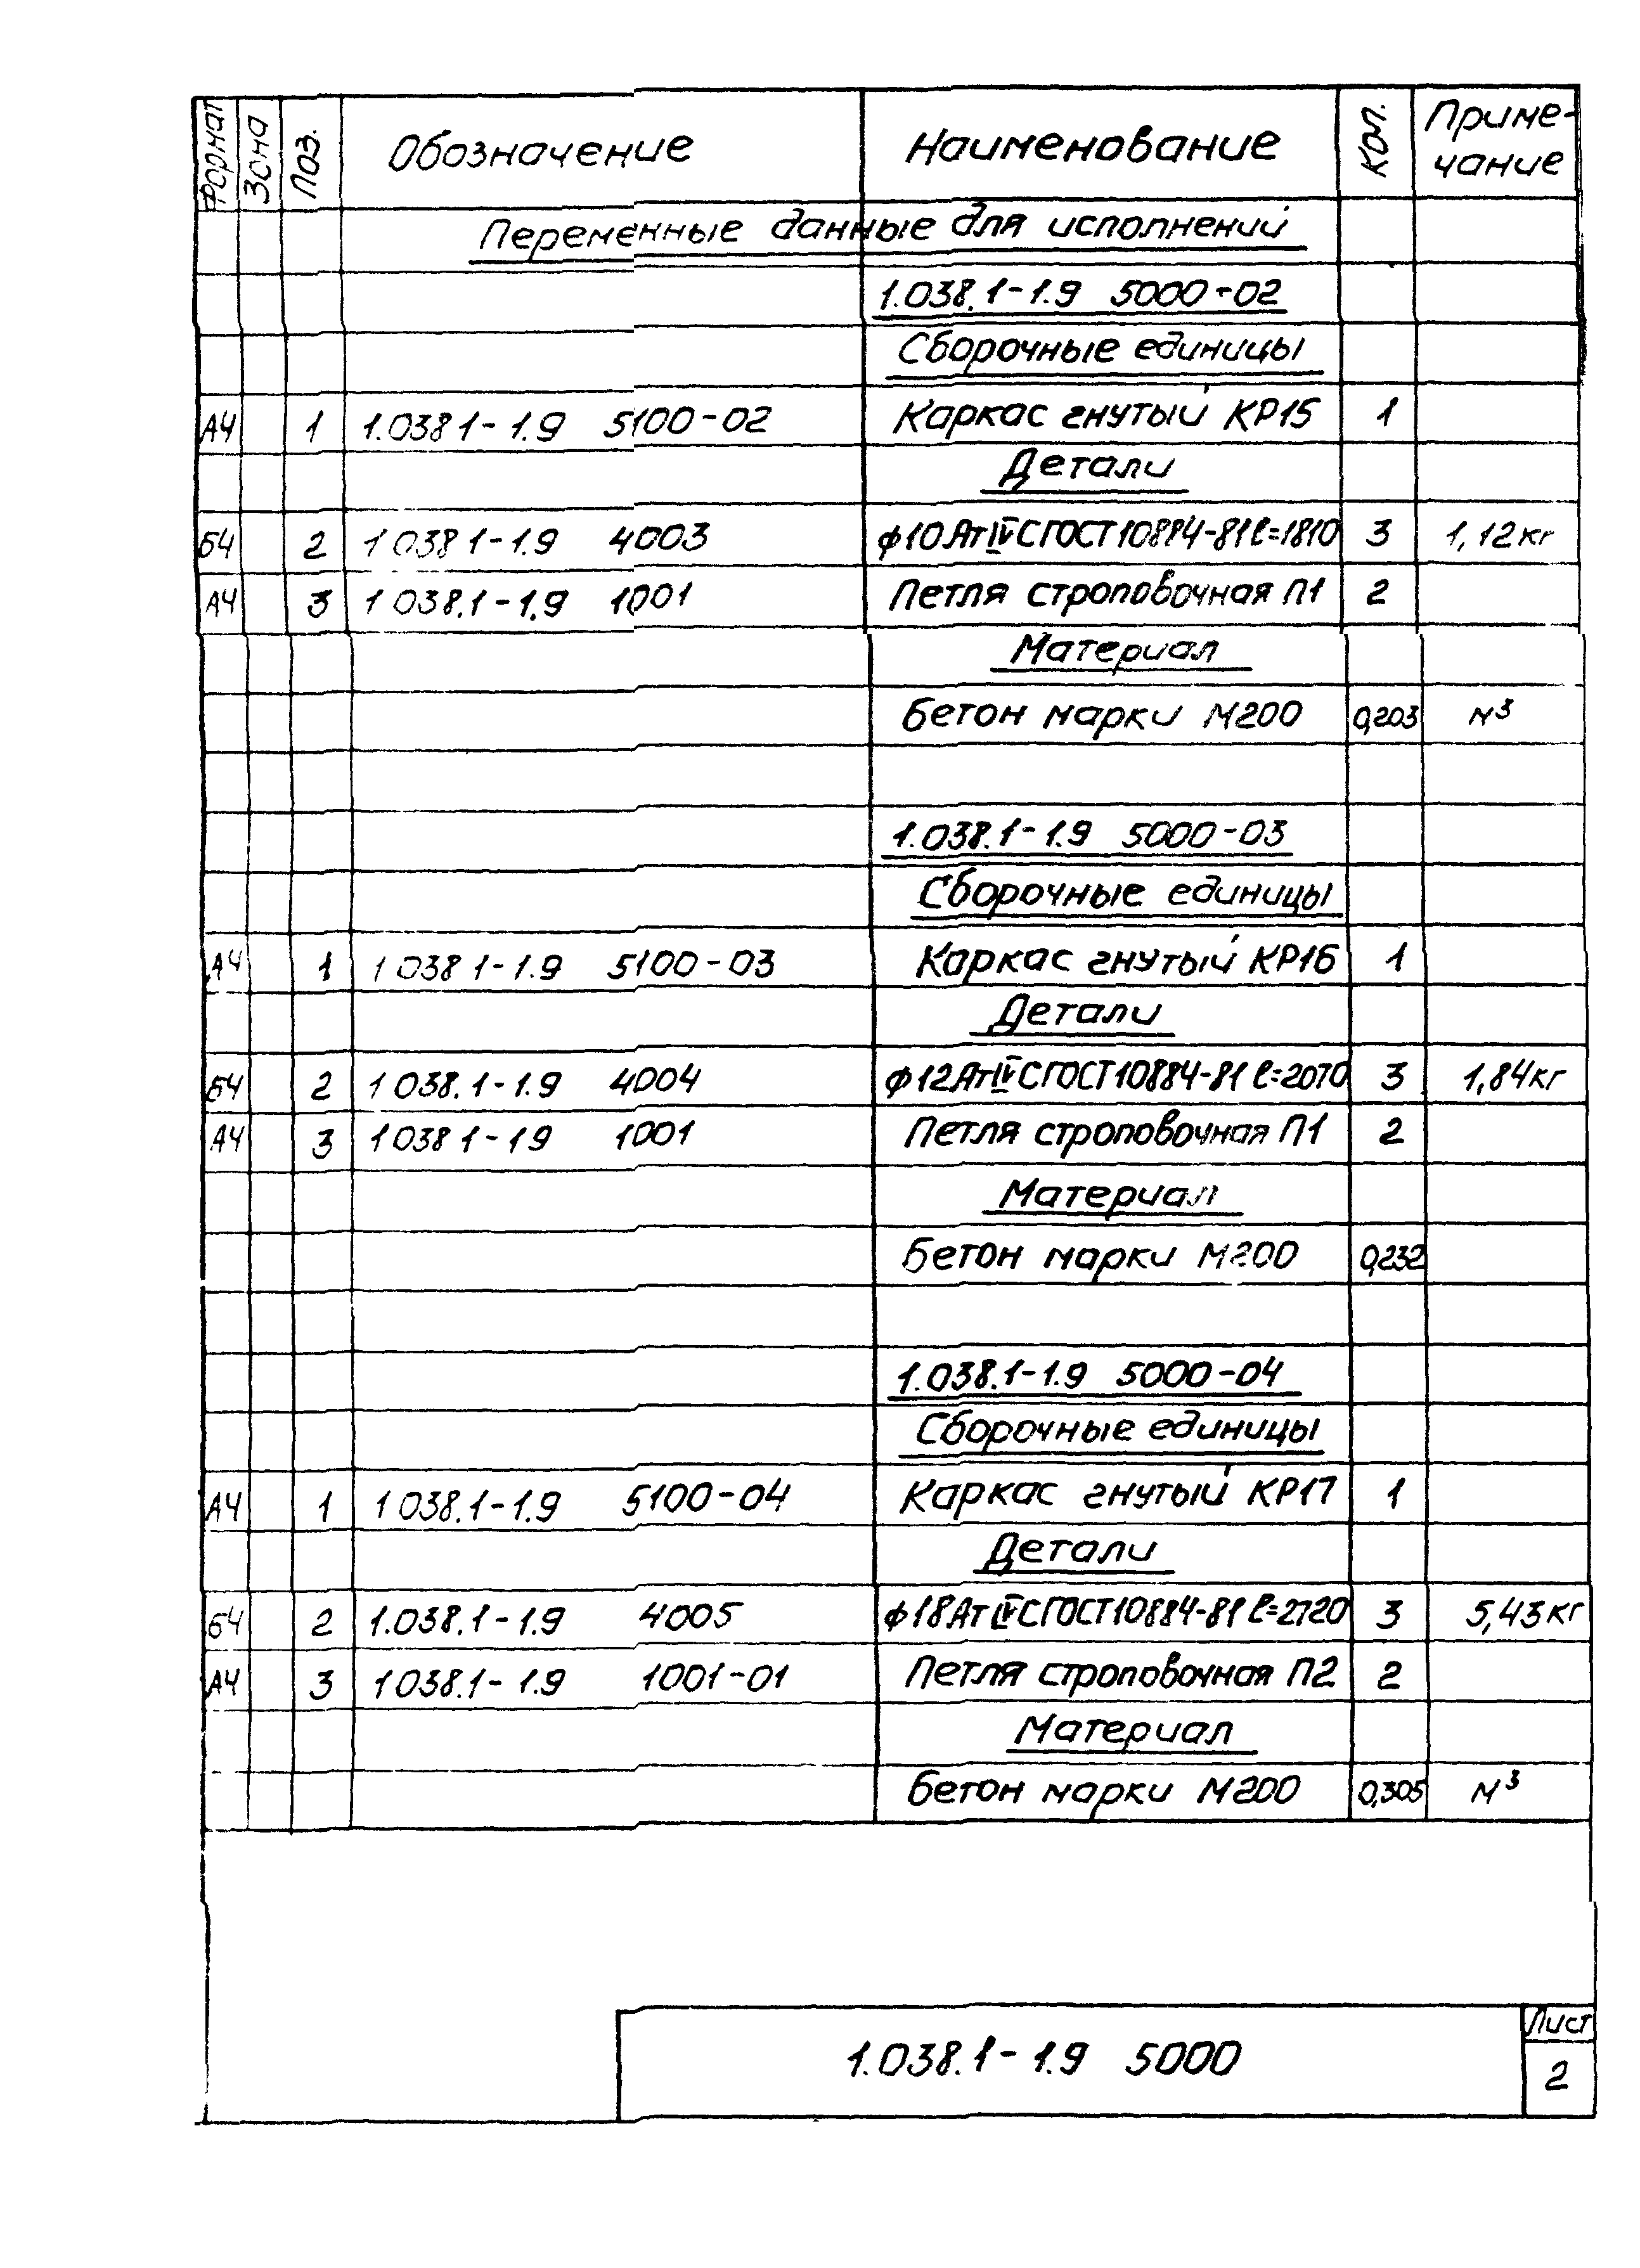 Формат Зона Поз. Обозначение Наименование Кол. Приме-
чание
Переменные данные для исполнений
1.038.1-1.9 5000-02
Сборочные единицы
А4 1 1.038 1-1.9 5100-02 Каркас гнутый КР15 1
Детали
Б4 2 1 038 1-1.9 4003 ф10АтIVС ГОСТ 10884-81 ℓ=1810 3 1,12кг
А4 3 1 038.1-1.9 1001 Петля строповочная П1 2
Материал
Бетон марки М200 0,203 м³
1.038.1-1.9 5000-03
Сборочные единицы
А4 1 1 038 1-1.9 5100-03 Каркас гнутый КР16 1
Детали
Б4 2 1 038.1-1.9 4004 ф12АтIVС ГОСТ 10884-81 ℓ=2070 3 1,84кг
А4 3 1 038 1-1 9 1001 Петля строповочная П1 2
Материал
Бетон марки М200 0,232
1.038.1-1.9 5000-04
Сборочные единицы
А4 1 1 038.1-1.9 5100-04 Каркас гнутый КР17 1
Детали
Б4 2 1.038.1-1.9 4005 ф18АтIVС ГОСТ 10884-81 ℓ=2720 3 5,43кг
А4 3 1 038.1-1.9 1001-01 Петля строповочная П2 2
Материал
Бетон марки М200 0,305 м³
1.038.1-1.9 5000
Лист
2